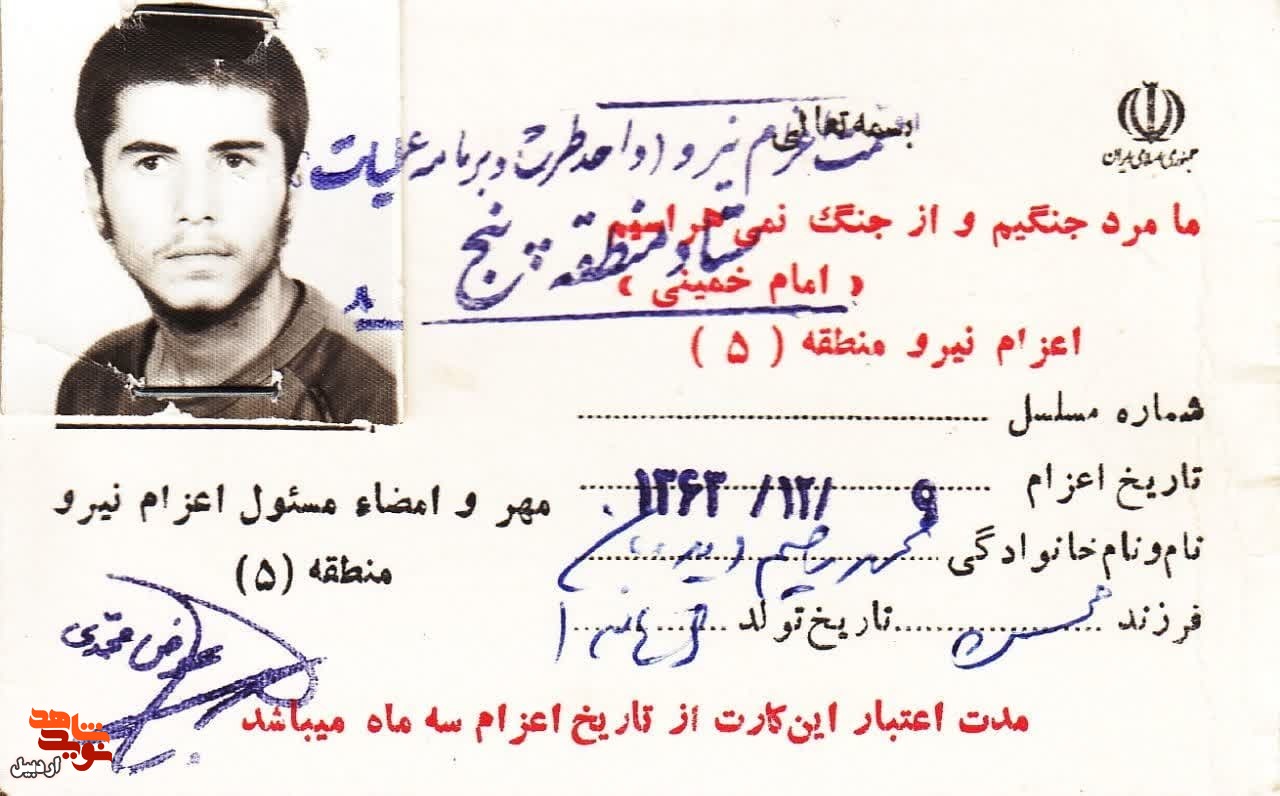 بسمه تعالی
جمهوری اسلامی ایران
اعزام نیرو (واحد طرح و برنامه عملیات
ستاد منطقه پنج
ما مرد جنگیم و از جنگ نمی هراسیم
« امام خمینی »
۸
اعزام نیرو منطقه ( ۵ )
شماره مسلسل
تاریخ اعزام ۹ /۱۲/ ۱۳۶۳
نام و نام خانوادگی محمد رحیم
فرزند تاریخ تولد
مهر و امضاء مسئول اعزام نیرو
منطقه (۵)
عوض محمدی
مدت اعتبار این کارت از تاریخ اعزام سه ماه میباشد
نوید شاهد
اردبیل